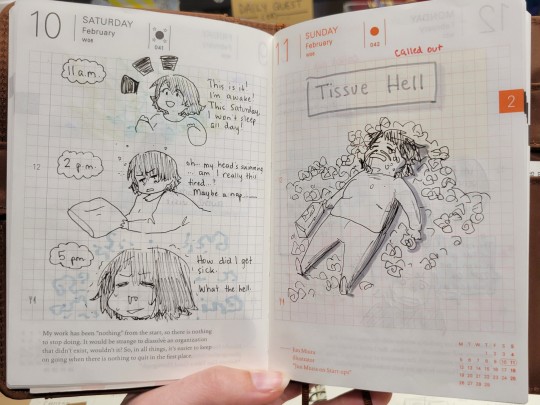 DAILY QUEST
10
SATURDAY
February
WOE
041
11 a.m.
This is it!
I'm awake!
This Saturday,
I won't sleep
all day!
12
2 p.m.
oh.. my head's swimming
... am I really this
tired..?
Maybe a nap......
5 pm
How did I get
sick.
What the hell.
My work has been "nothing" from the start, so there is nothing
to stop doing. It would be strange to dissolve an organization
that didn't exist, wouldn't it? So, in all things, it's easier to keep
on going when there is nothing to quit in the first place.
11
SUNDAY
February
042
called out
Tissue Hell
2
Jun Miura
Illustrator
M T W T F S S